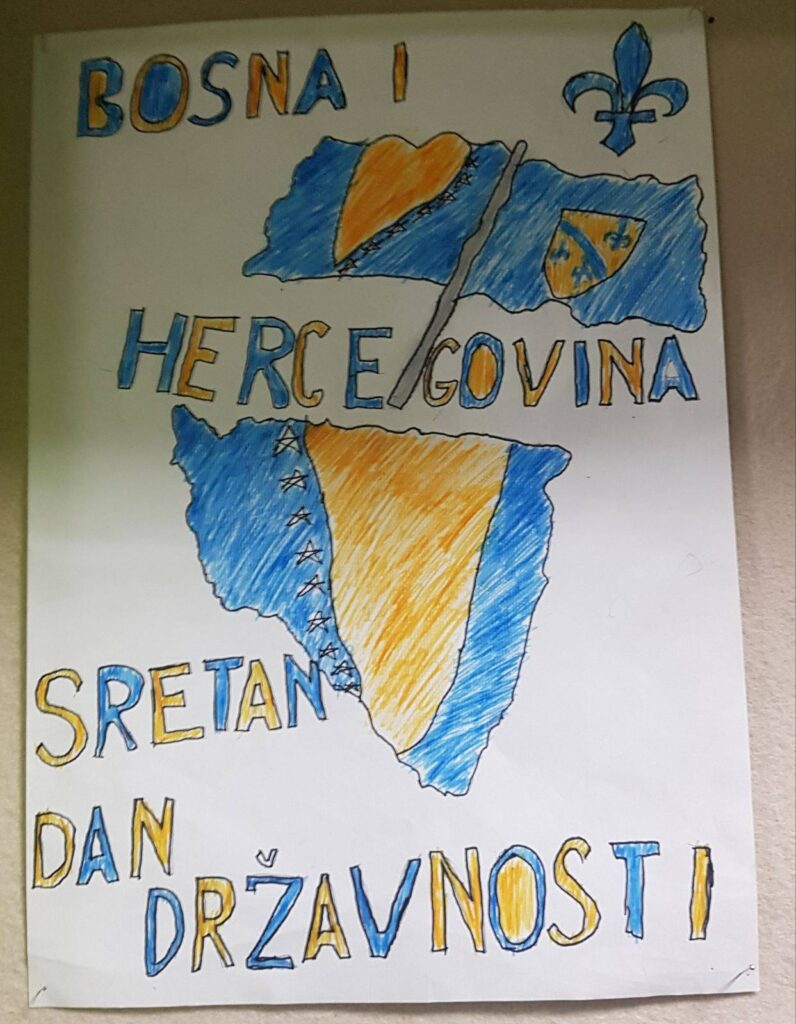 BOSNA I
HERCEGOVINA
SRETAN
DAN
DRŽAVNOSTI